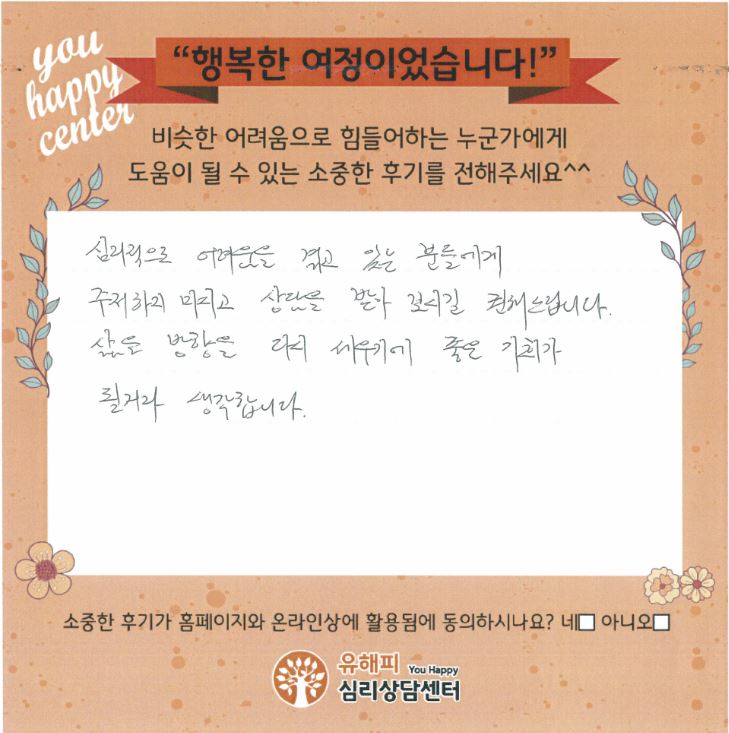 you
happy
center
“행복한 여정이었습니다!”
비슷한 어려움으로 힘들어하는 누군가에게
도움이 될 수 있는 소중한 후기를 전해주세요^^
심리적으로 어려움을 겪고 있는 분들에게
주저하지 마시고 상담을 받아 보시길 권해드립니다.
삶의 방향을 다시 세우기에 좋은 기회가
될거라 생각합니다.
소중한 후기가 홈페이지와 온라인상에 활용됨에 동의하시나요? 네□ 아니오□
유해피 You Happy
심리상담센터